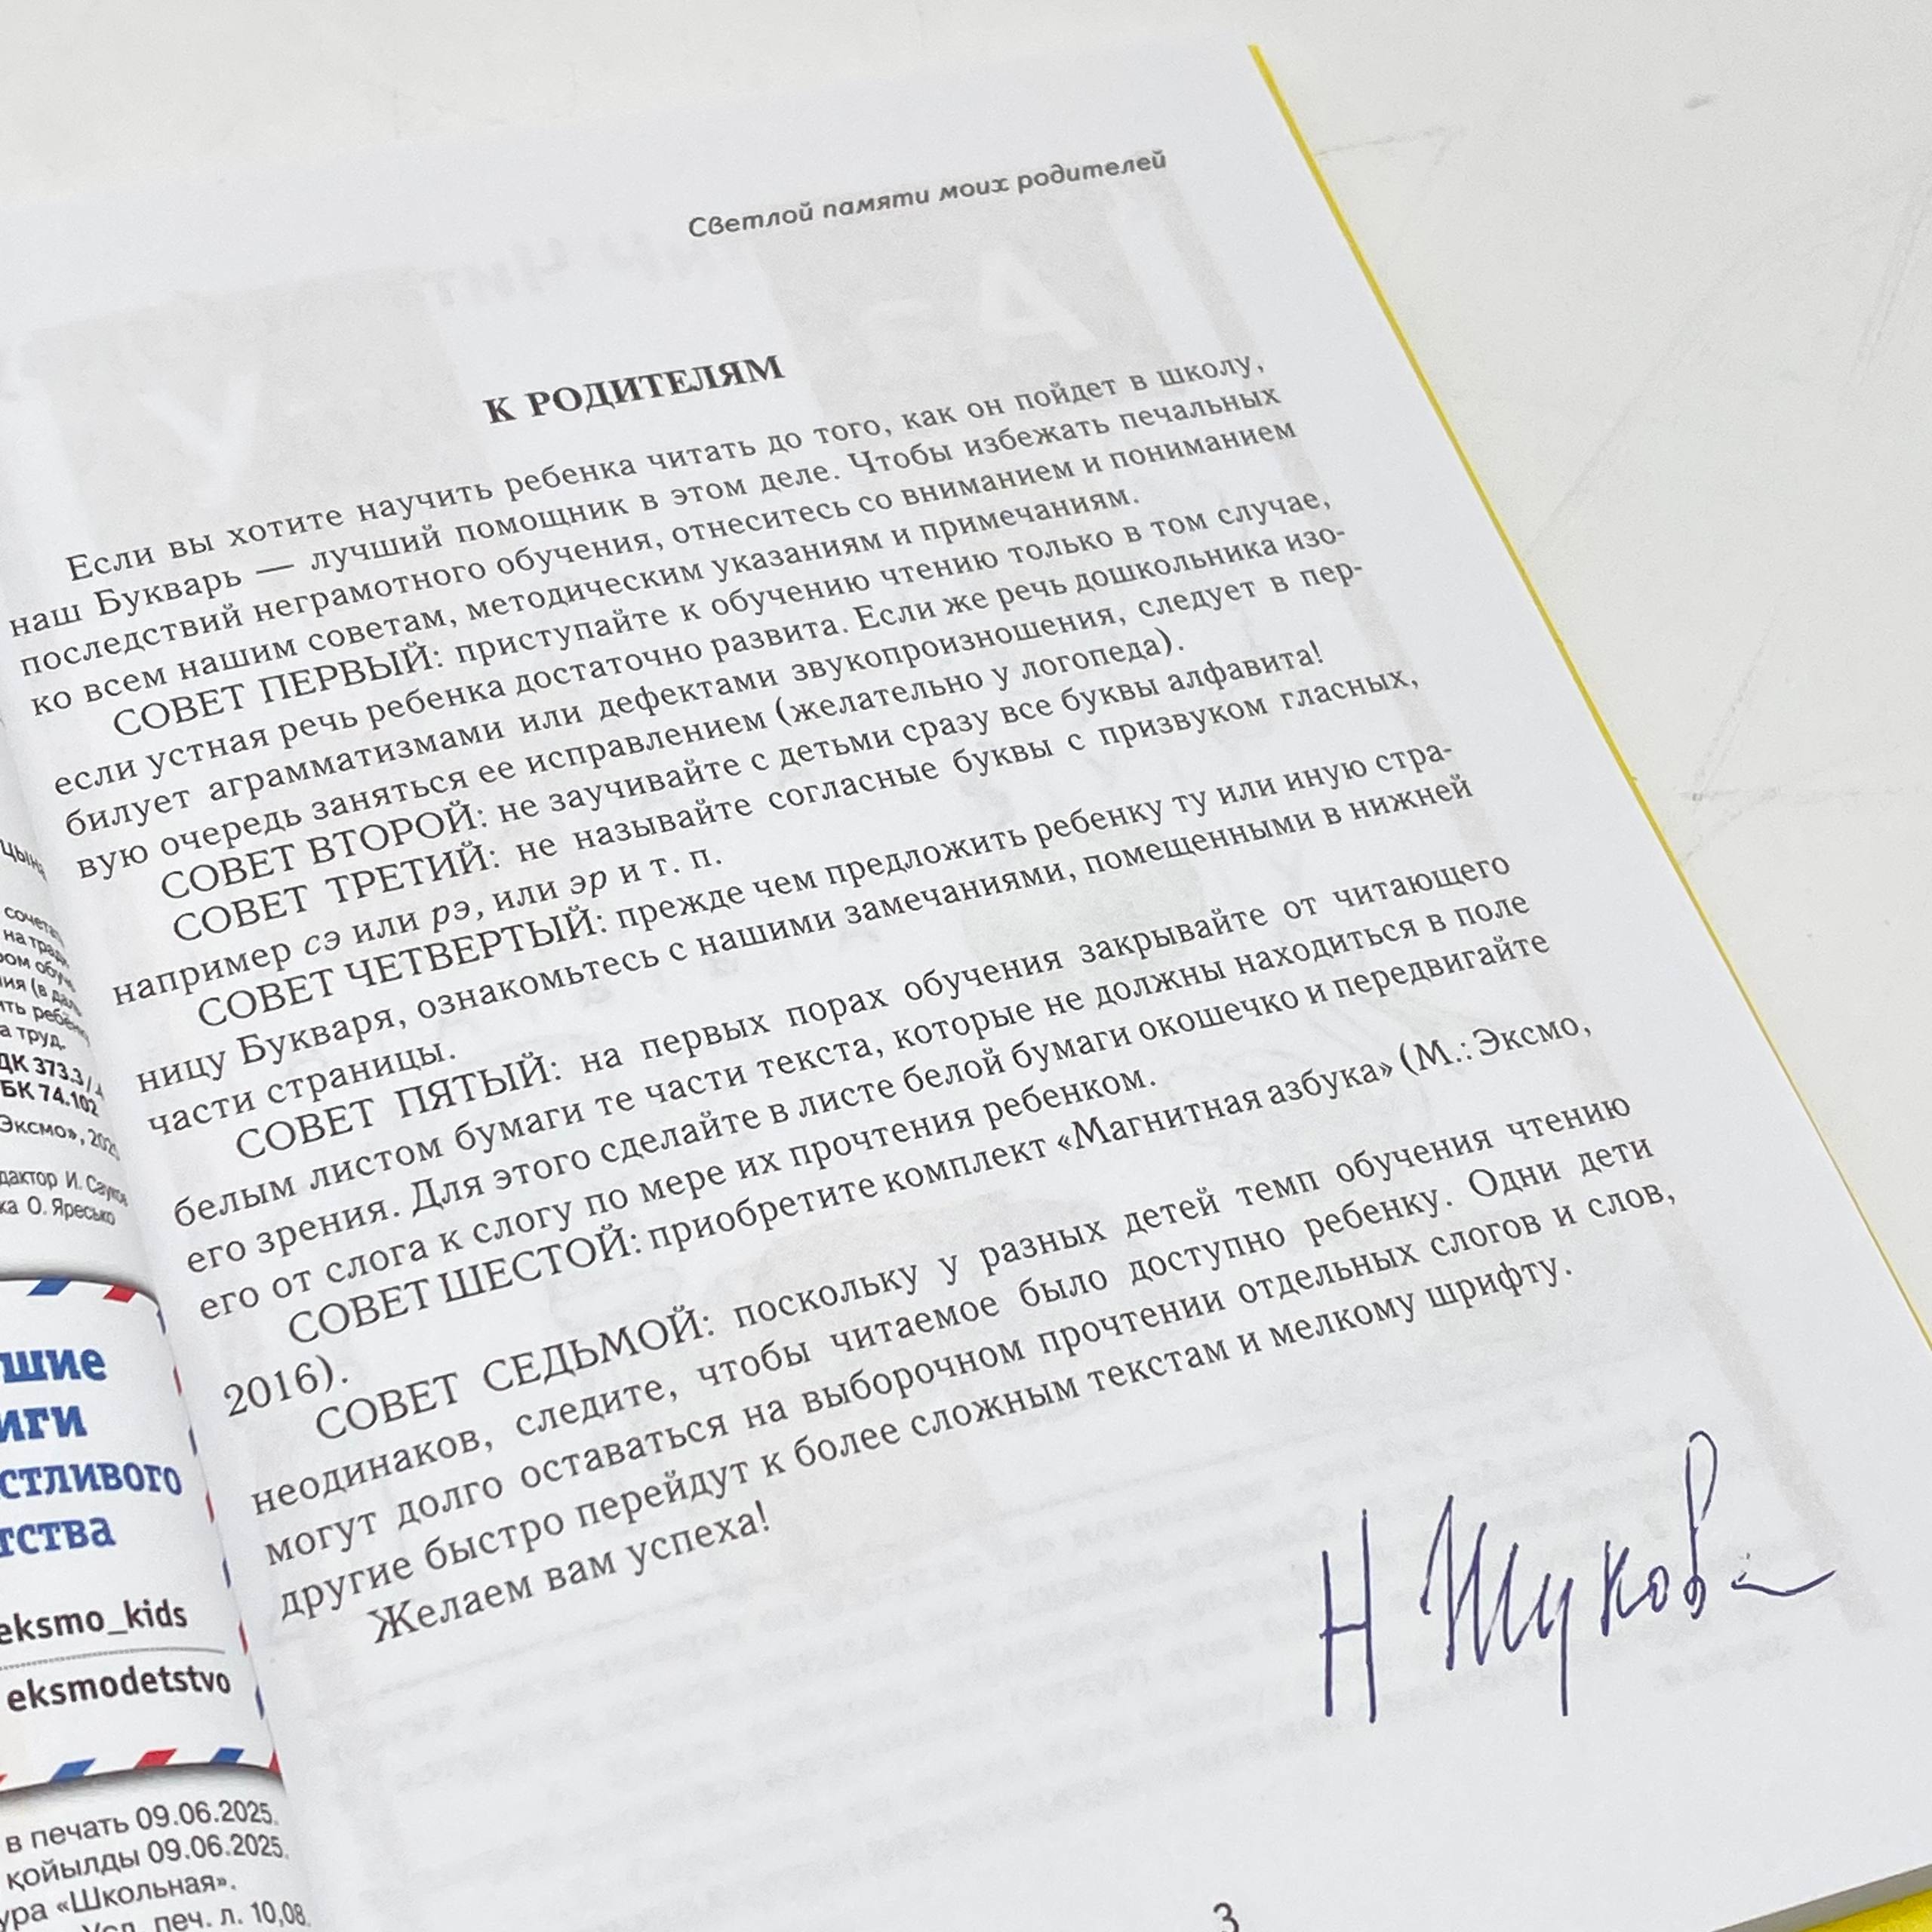 Светлой памяти моих родителей
К РОДИТЕЛЯМ
Если вы хотите научить ребенка читать до того, как он пойдет в школу,
наш Букварь — лучший помощник в этом деле. Чтобы избежать печальных
последствий неграмотного обучения, отнеситесь со вниманием и пониманием
ко всем нашим советам, методическим указаниям и примечаниям.
СОВЕТ ПЕРВЫЙ: приступайте к обучению чтению только в том случае,
если устная речь ребенка достаточно развита. Если же речь дошкольника изо-
билует аграмматизмами или дефектами звукопроизношения, следует в пер-
вую очередь заняться ее исправлением (желательно у логопеда).
СОВЕТ ВТОРОЙ: не заучивайте с детьми сразу все буквы алфавита!
СОВЕТ ТРЕТИЙ: не называйте согласные буквы с призвуком гласных,
например сэ или рэ, или эр и т. п.
СОВЕТ ЧЕТВЕРТЫЙ: прежде чем предложить ребенку ту или иную стра-
ницу Букваря, ознакомьтесь с нашими замечаниями, помещенными в нижней
части страницы.
СОВЕТ ПЯТЫЙ: на первых порах обучения закрывайте от читающего
белым листом бумаги те части текста, которые не должны находиться в поле
его зрения. Для этого сделайте в листе белой бумаги окошечко и передвигайте
его от слога к слогу по мере их прочтения ребенком.
СОВЕТ ШЕСТОЙ: приобретите комплект «Магнитная азбука» (М.: Эксмо,
2016).
СОВЕТ СЕДЬМОЙ: поскольку у разных детей темп обучения чтению
неодинаков, следите, чтобы читаемое было доступно ребенку. Одни дети
могут долго оставаться на выборочном прочтении отдельных слогов и слов,
другие быстро перейдут к более сложным текстам и мелкому шрифту.
Желаем вам успеха!
Н Жукова
3
на
(в
а труд.
ДК 373.3/
БК 74.102
Эксмо»,
дактор И.
ка О. Яресько
шие
иги
стливого
тства
eksmo_kids
eksmodetstvo
в печать 09.06.2025.
қойылды 09.06.2025.
ура «Школьная».
печ. л. 10,08.